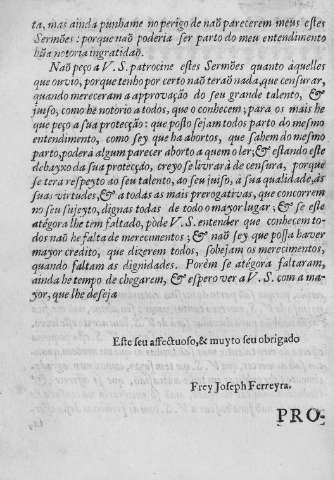 ta, mas ainda punhame no perigo de naõ parecerem meus estes
Sermões: porque naõ poderia ser parto do meu entendimento
hũa notoria ingratidaõ.
Naõ peço a V. S. patrocine estes Sermões quanto âquelles
que ouvio, porque tenho por certo naõ teraõ nada, que censurar,
quando mereceram a approvação do seu grande talento, &
juiso, como he notorio a todos, que o conhecem; para os mais he
que peço a sua protecção: que posto sejam todos parto do mesmo
entendimento, como sey que ha abortos, que sahem do mesmo
parto, poderá algum parecer aborto a quem o ler; & estando este
debayxo da sua protecção, creyo se livrarà de censura, porque
se tera respeyto ao seu talento, ao seu juiso, á sua qualidade, às
suas virtudes, & a todas as mais prerogativas, que concorrem
no seu sujeyto, dignas todas de todo o mayor lugar; & se este
atégora lhe tem faltado, póde V. S. entender que conhecem to-
dos naõ he falta de merecimentos; & naõ sey que possa haver
mayor credito, que dizerem todos, sobejam os merecimentos,
quando faltam as dignidades. Porèm se atégora faltaram,
ainda he tempo de chegarem, & espero ver a V. S. com a ma-
yor, que lhe deseja
Este seu affectuoso, & muyto seu obrigado
Frey Joseph Ferreyra.
PRO-